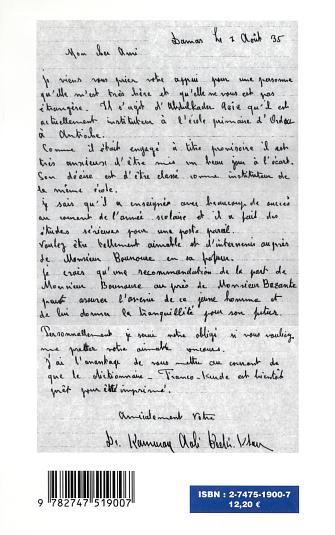 Damas le 2 Août 35
Mon cher Ami
je viens vous prier votre appui pour une personne
qu'elle m'est très chère et qu'elle ne vous est pas
étrangère. Il s'agit d'Abdulkader Aziz qu'il est
actuellement instituteur à l'école primaire d'Ordou
à Antioche.
Comme il était engagé à titre provisoire il est
très anxieux d'être mis un beau jour à l'écart.
Son désire est d'être classé comme instituteur de
la même école.
j'y sais qu'il a enseigné avec beaucoup de succès
au courant de l'année scolaire et il a fait des
études sérieuses pour une poste pareil.
voulez être tellement aimable et d'intervenir auprès
de Monsieur Bounoure en sa faveur.
je crois qu'une recommandation de la part de
Monsieur Bounoure au près de Monsieur Bazante
peut assurer l'avenir de ce jeune homme et
de lui donner la tranquillité pour son
Personnellement je serai votre obligé si vous vouliez
me prêter votre aimable concours.
j'ai l'avantage de vous mettre au courant de
que le dictionnaire Franco-Kurde est bientôt
prêt pour être imprimé.
Amicalement Votre
Dr. Kamuran Aali Bedir-Khan
9 782747 519007
ISBN : 2-7475-1900-7
12,20 €